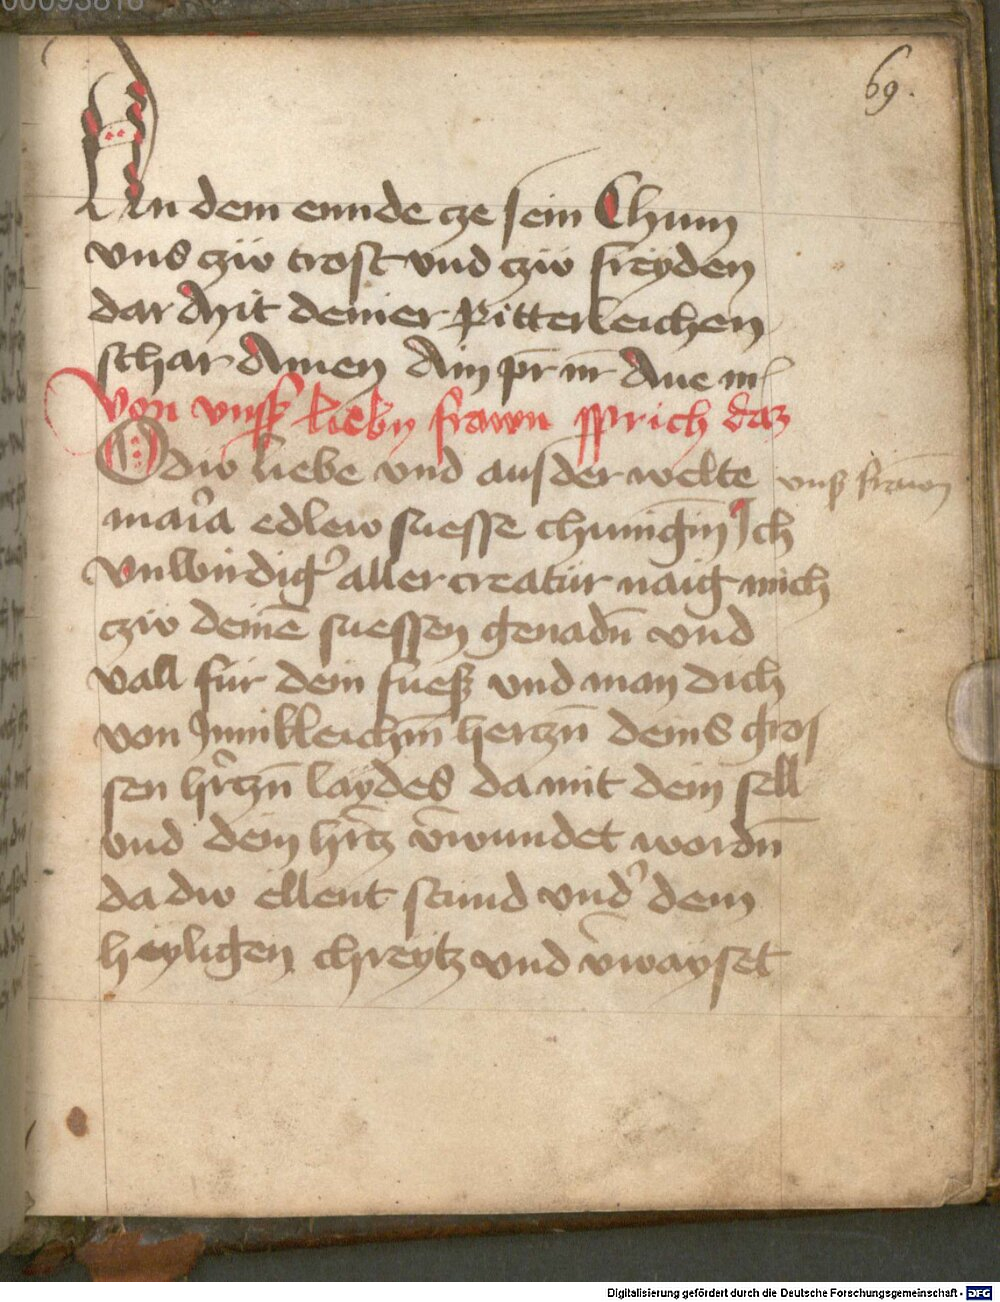 00093818
69.
An dem ennde cze sein Chum
vns cziv trost vnd cziv freyden
dar Mit deiner Ritterleichen
schar Amen Ain pr̄ nr̄ Aue m
Von vnsß liebn frawn sprich daz
O div liebe vnd aus der welte
vnß frawn
maria edlew suesse chunigīn Ich
vnwirdig᾽ aller creatur naig mich
cziv deinē suessen genadn̄ vnd
vall für dein fueß vnd man dich
von Innikleichm̄ hertzn̄ deins gros
sen h᾽rtzn̄ laydes da mit dein sell
vnd dein h᾽rtz v̄wundet wordn̄
da dw ellent stund vnd᾽ dem
heyligen chreytz vnd v̄wayset
Digitalisierung gefördert durch die Deutsche Forschungsgemeinschaft - DFG